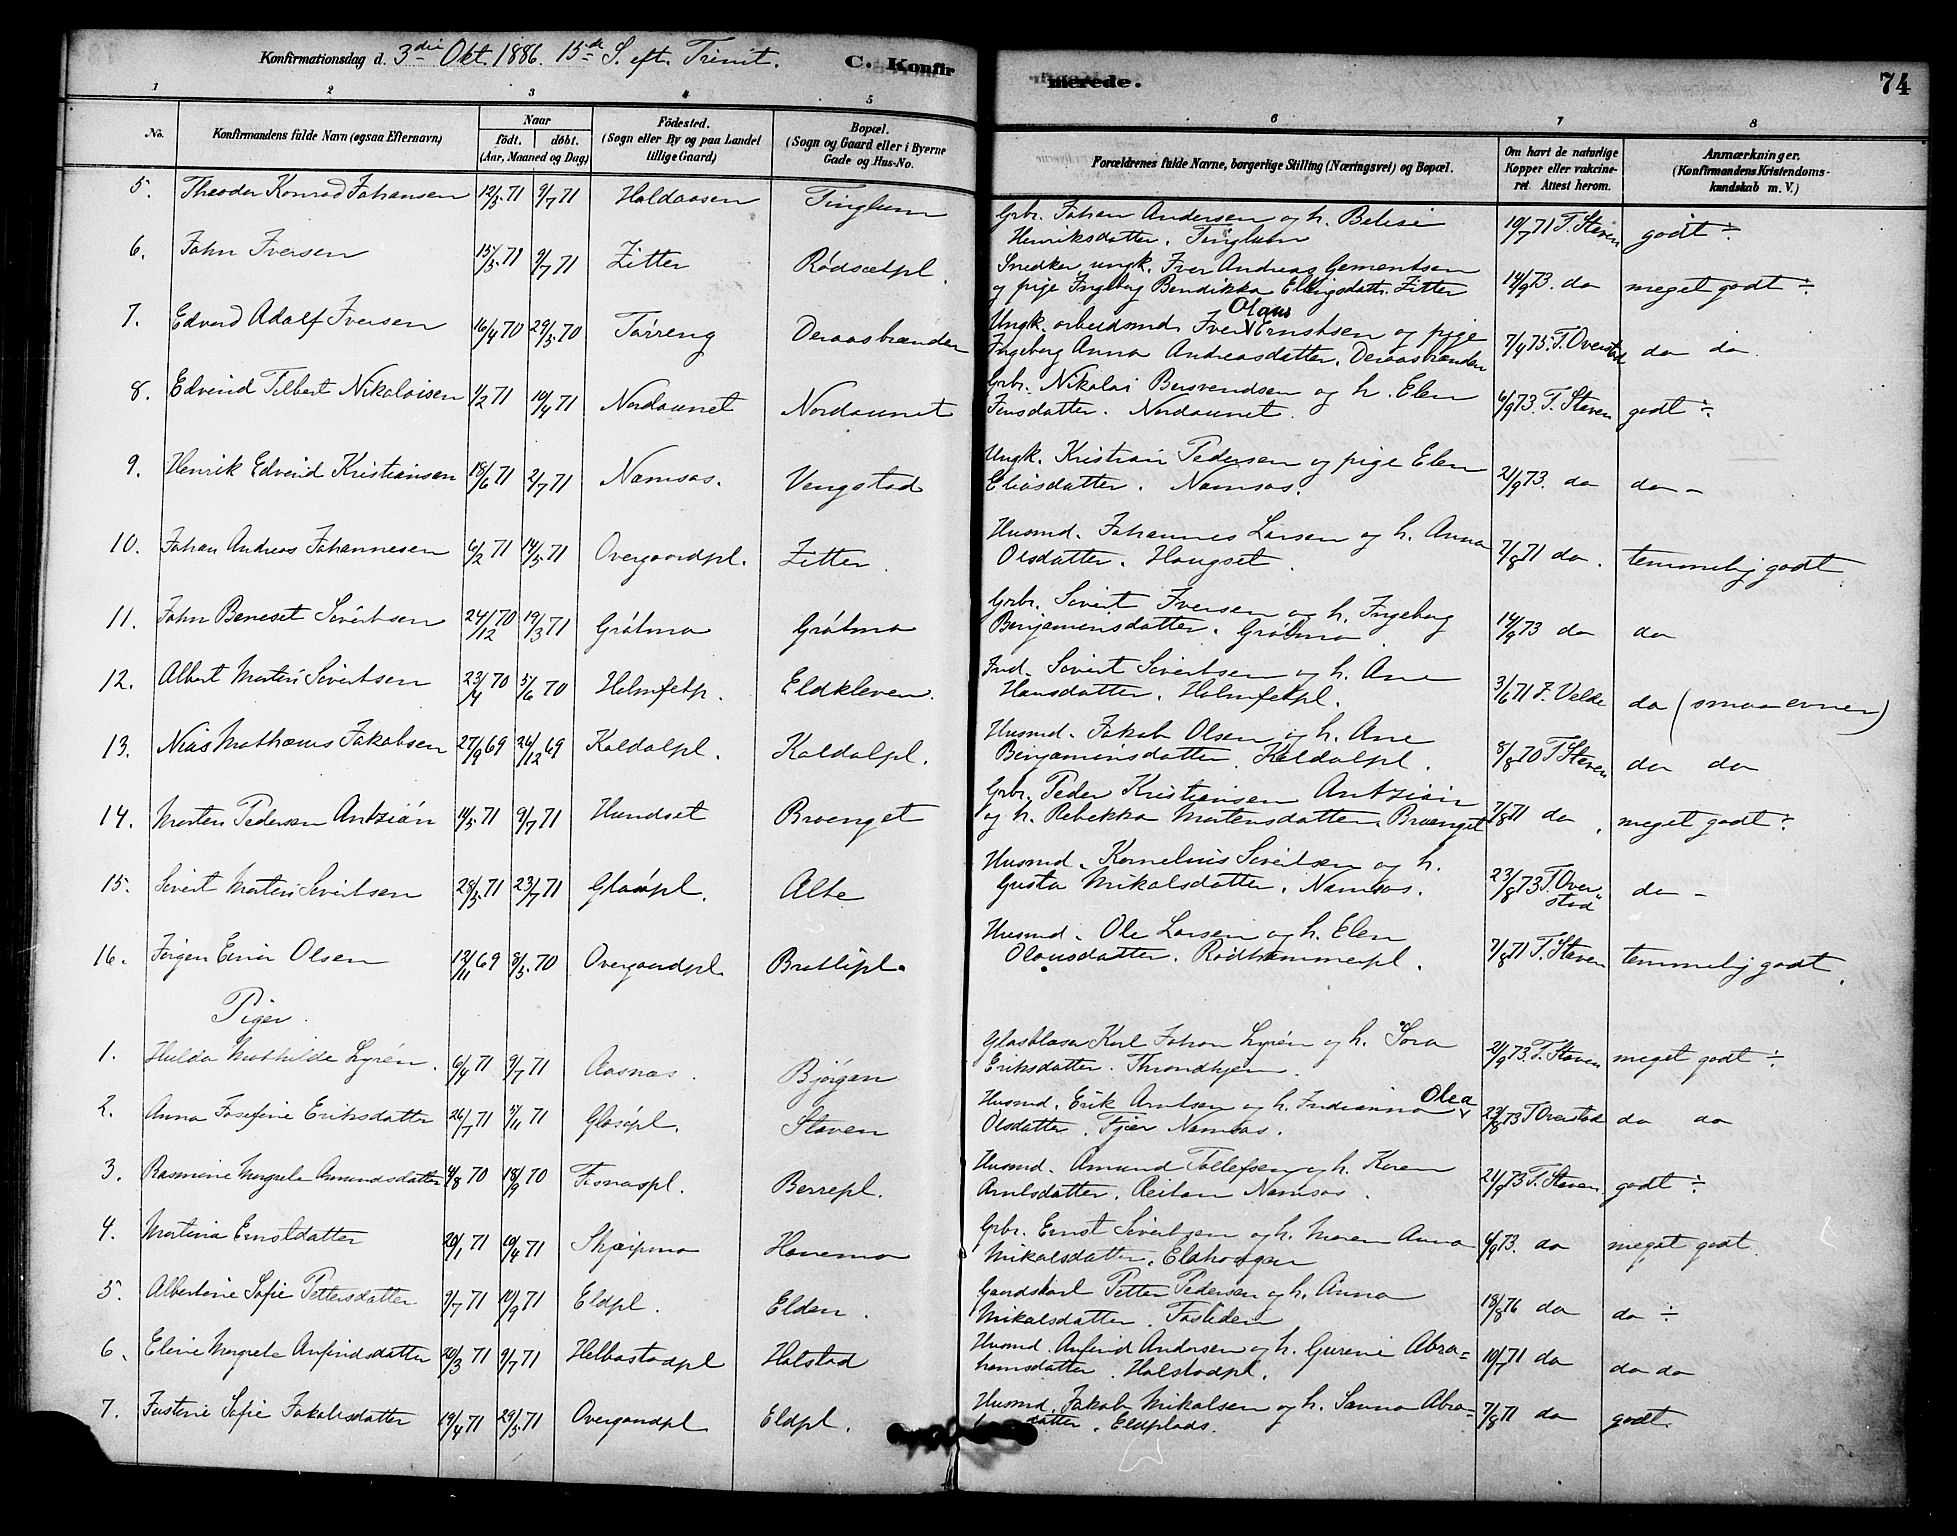 Konfirmationsdag d. 3die Okt. 1886. 15de S. eft. Trinit. C. Konfirmerede. 74
1 2 3 4 5 6 7 8
No. Konfirmandens fulde Navn (ogsaa Efternavn) Naar födt. döbt. (Aar, Maaned og Dag) Födested. (Sogn eller By og paa Landet tillige Gaard) Bopæl. (Sogn og Gaard eller i Byerne Gade og Hus-No. Forældrenes fulde Navne, borgerlige Stilling (Næringsvei) og Bopæl. Om havt de naturlige Kopper eller vakcineret. Attest herom. Anmærkninger. (Konfirmandens Kristendomskundskab m. V.)
5. Theodor Konrad Johansen 12/5 71 9/7 71 Haldaasen Tinglum Grbr. Johan Andersen og h. Belise 10/7 71 T. Staven godt ÷
Henriksdatter. Tinglum
6. John Iversen 15/5 71 9/7 71 Zitter Rødsætpl. Snedker ungk. Iver Andreas Gementsen 14/9 73. do meget godt ÷
og pige Ingeborg Bendikka Ellingsdatt. Zitter
7. Edvard Adolf Iversen 16/4 70 29/5 70 Tørreng Deraasbrænden Ungk. arbeidsmd. Iver Olaus Ernstsen og pige 7/4 75. T. Overstad do do
Ingeborg Anna Andreasdatter. Deraasbrænden
8. Edvind Tilbert Nikolaisen 1/2 71 10/4 71 Nordaunet Nordaunet Grbr. Nikolai Bersvendsen og h. Elen 6/9 73. T. Staven godt ÷
Jensdatter. Nordaunet.
9. Henrik Edvind Kristiansen 18/6 71 2/7 71 Namsos. Vengstad Ungk. Kristian Pedersen og pige Elen 21/9 73. do do –
Eliasdatter. Namsos.
10. Johan Andreas Johannesen 6/2 71 14/5 71 Overgaardpl. Zitter. Husmd. Johannes Larsen og h. Anna 7/8 71 do. temmelig godt
Olsdatter. Haugset.
11. John Beneset Sivertsen 24/12 70 19/3 71 Grøtmo Grøtmo Grbr. Sivert Iversen og h. Ingeborg 14/9 73 do do
Benjaminsdatter. Grøtmo.
12. Albert Martin Sivertsen 23/4 70 5/6 70 Holmsetp. Eldkleven. Ind. Sivert Sivertsen og h. Ane 3/6 71 F. Velde do (smaa evner)
Hansdatter. Holmsetpl.
13. Nias Mathæus Jakobsen 27/9 69 26/12 69 Kaldalpl. Kaldalpl. Husmd. Jakob Olsen og h. Ane 8/8 70 T Staven do do
Benjaminsdatter. Kaldalpl.
14. Morten Pedersen Antzión 14/5 71 9/7 71 Hundset Braenget Grbr. Peder Kristiansen Antzión 7/8 71 do. meget godt ÷
og h. Rebekka Mortensdatter. Braenget
15. Sivert Martin Sivertsen 28/5 71 23/7 71 Glasøpl. Alte Husmd. Kornelius Sivertsen og h. 23/8 73 T. Overstad do –
Gusta Mikalsdatter. Namsos.
16. Jørgen Einar Olsen 12/11 69 8/5 70 Overgaardpl. Bratlipl. Husmd. Ole Larsen og h. Elen 7/8 71 T. Staven temmelig godt.
Olausdatter. Rødhammerpl.
Piger.
1. Hulda Mathilde Lyrén. 6/4 71 9/7 71 Aasnæs. Bjørgan Glasblæsa Karl Johan Lyrén og h. Sara 21/9 73 T. Staven meget godt ÷
Eriksdatter. Throndhjem.
2. Anna Josefine Eriksdatter 26/7 71 5/11 71 Glasøpl. Staven Husmd. Erik Arntsen og h. Indianna Olea 23/8 73 T Overstad do do
Olsdatter. Fjær Namsos.
3. Rasmine Margrete Amundsdatter 4/8 70 18/9 70 Fisnæspl. Berrepl. Husmd. Amund Tollefsen og h. Karen 21/9 73 T. Staven godt ÷
Arntsdatter. Reitan Namsos.
4. Martina Ernstdatter 20/1 71 10/4 71 Skjeipmo Hanemo Grbr. Ernst Sivertsen og h. Maren Anna 4/9 73. do meget godt.
Mikalsdatter. Eldhaugen
5. Albertine Sofie Pettersdatter 9/7 71 10/9 71 Eldpl. Elden. Gaardskarl Petter Pedersen og h. Anna 18/8 76 do do ÷
Mikalsdatter. Fosliden
6. Eline Margrete Anfindsdatter 20/3 71 9/7 71 Helbostadpl Halstad Husmd. Anfind Andersen og h. Gurine Abra= 10/7 71 do do do
hamsdatter. Halstadpl.
7. Justine Sofie Jakobsdatter 19/4 71 29/5 71 Overgaardpl Eldpl. Husmd. Jakob Mikalsen og h. Sanna Abra= 7/8 71 do godt.
datter. Eldplads.